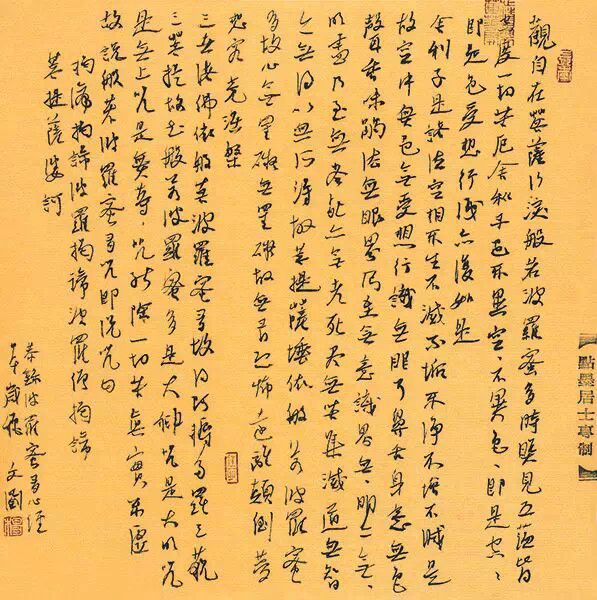 觀自在菩薩行深般若波羅蜜多時照見五蘊皆
度一切苦厄舍利子色不異空、不異色、即是空、
即是色受想行識亦復如是
舍利子是諸法空相不生不滅不垢不淨不增不減是
故空中無色無受想行識無眼耳鼻舌身意無色
聲香味觸法無眼界乃至無意識界無、明亦無、
明盡乃至無老死亦無老死盡無苦集滅道無智
亦無得以無所得故菩提薩埵依般若波羅蜜
多故心無罣礙無罣礙故無有恐怖遠離顛倒夢
想究竟涅槃
三世諸佛依般若波羅蜜多故得阿耨多羅三藐
三菩提故知般若波羅蜜多是大神咒是大明咒
是無上咒是無等、咒能除一切苦真實不虛
故說般若波羅蜜多咒即說咒曰
揭諦揭諦波羅揭諦波羅僧揭諦
菩提薩婆訶
恭錄波羅蜜多心經
歲 文
點墨居士專制